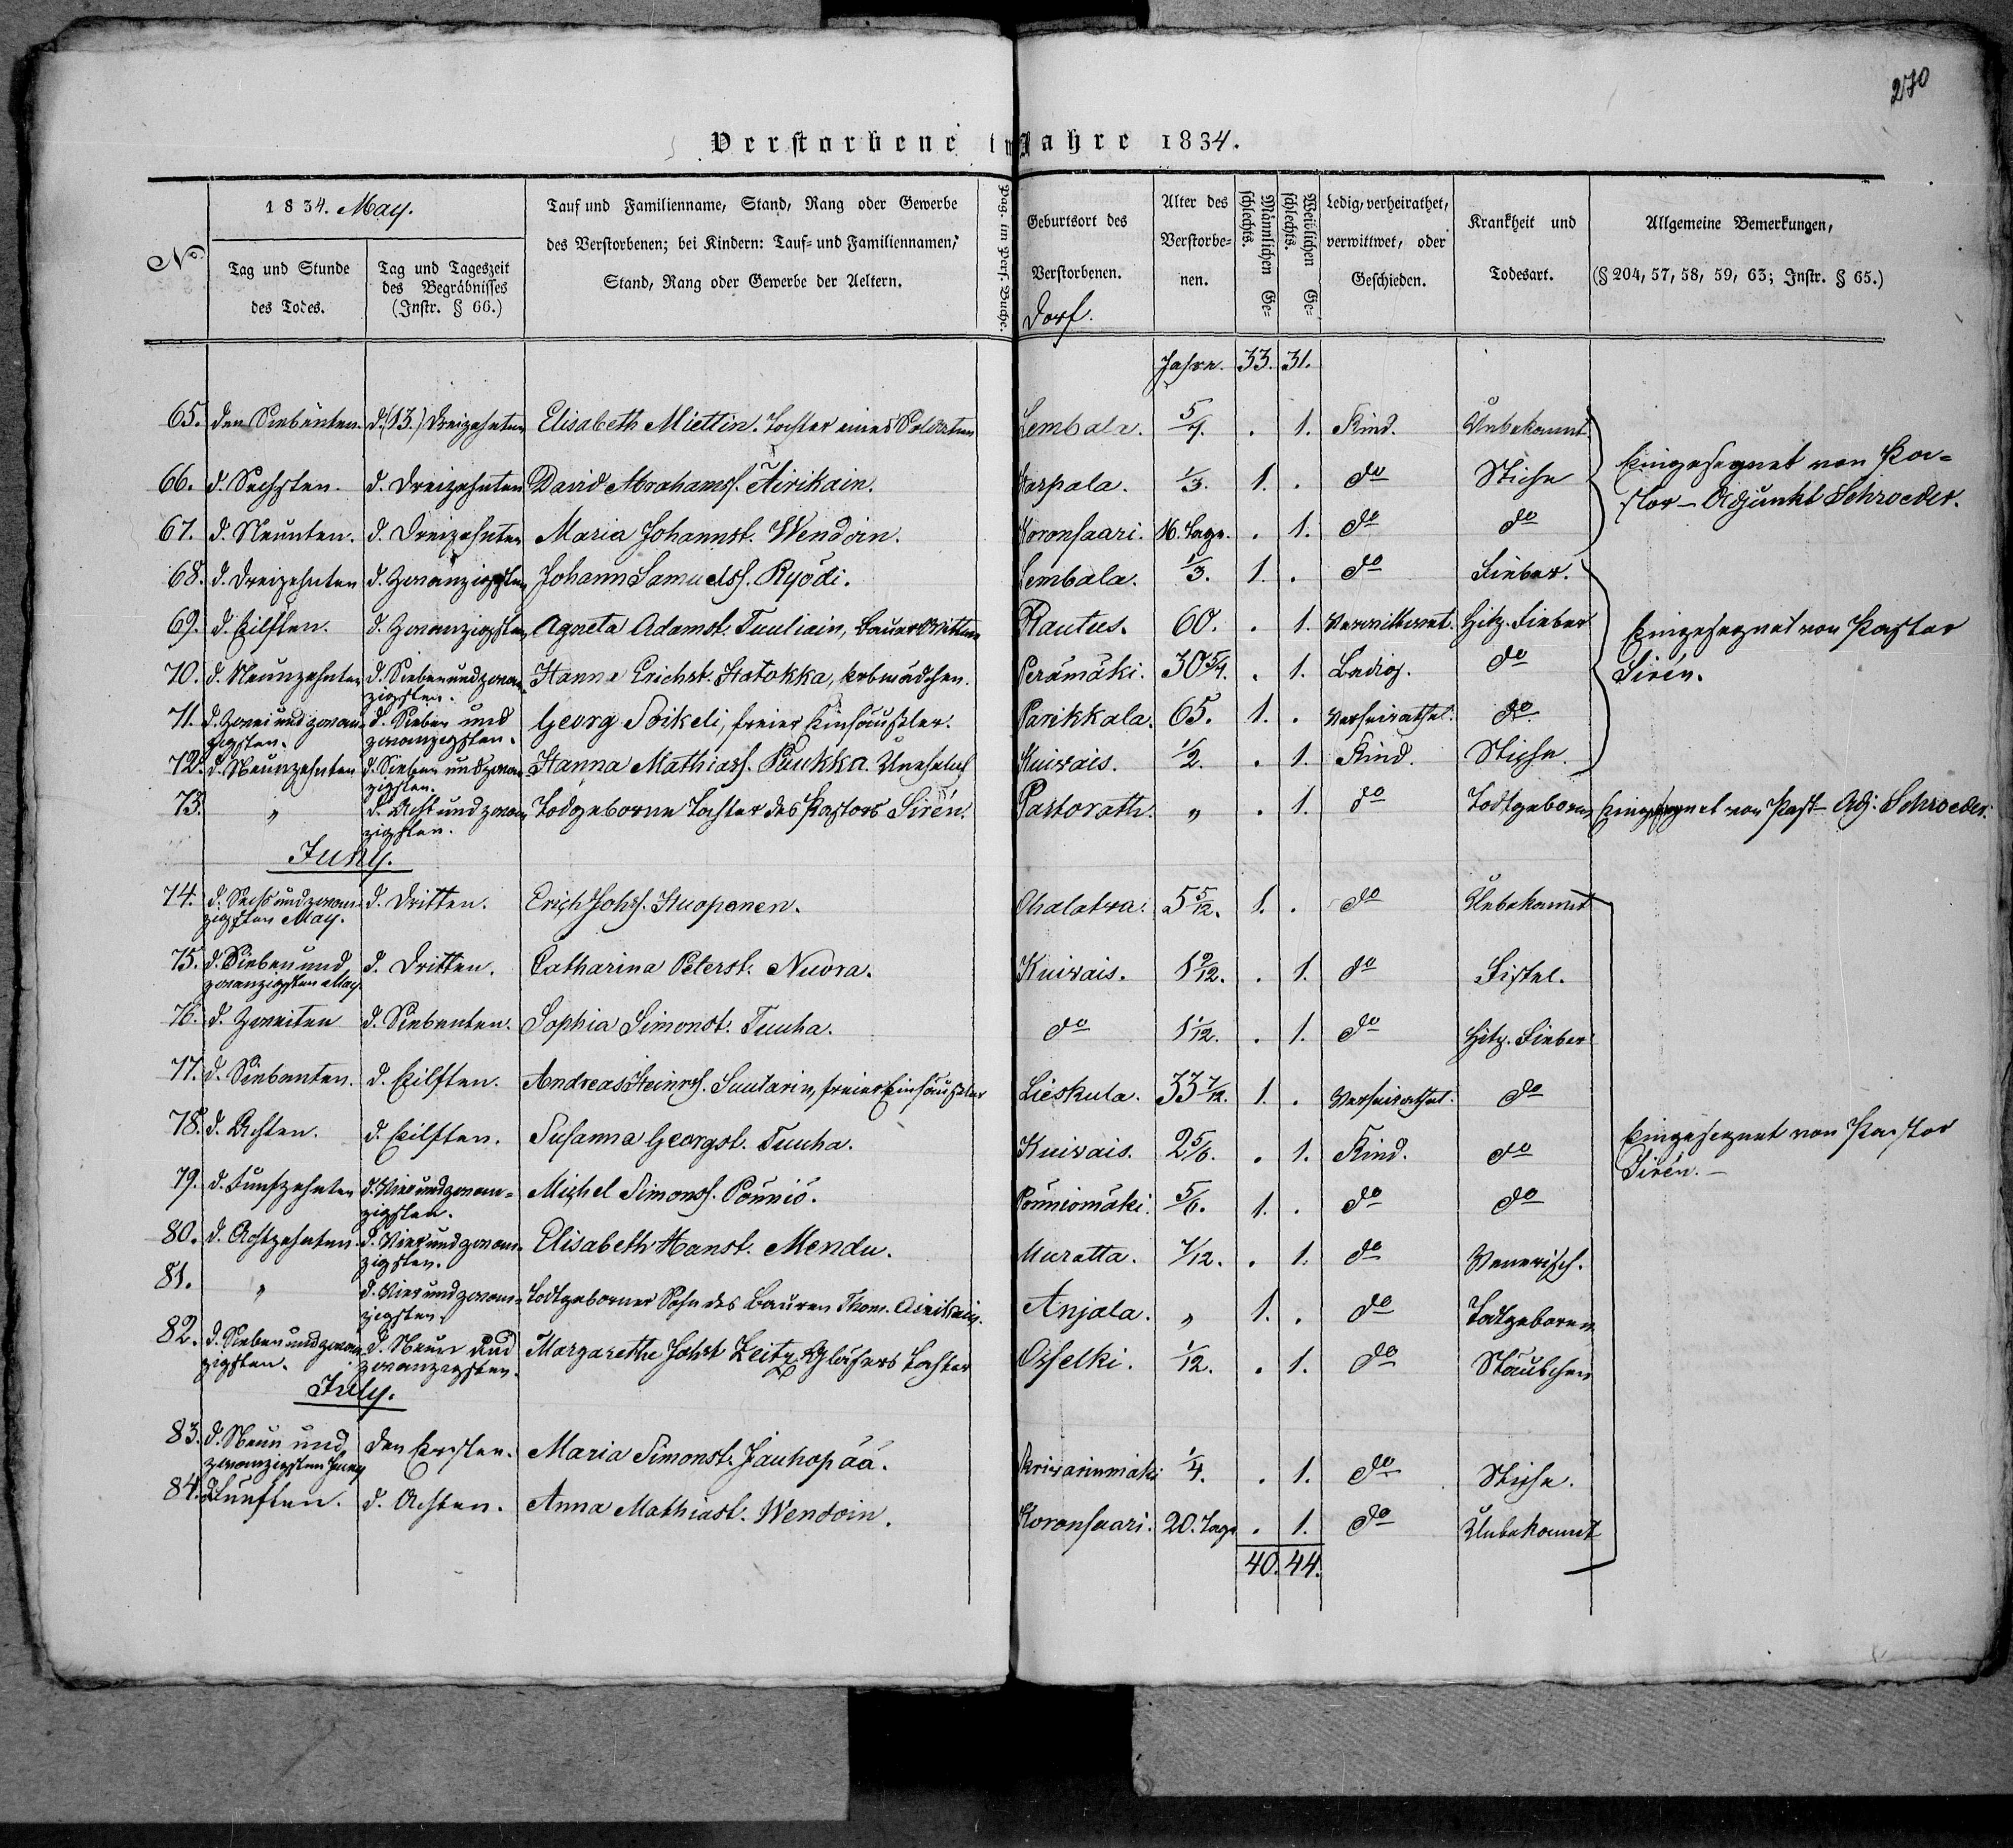 270
Verstorbene im Jahre 1834.
No.
1834. May.
Tag und Stunde des Todes.
Tag und Tageszeit des Begräbnisses (Instr. § 66.)
Tauf und Familienname, Stand, Rang oder Gewerbe des Verstorbenen; bei Kindern: Tauf- und Familiennamen, Stand, Rang oder Gewerbe der Aeltern.
Pag. im Pers. Buche.
Geburtsort des Verstorbenen. Dorf.
Alter des Verstorbenen.
Männlichen Geschlechts.
Weiblichen Geschlechts.
Ledig, verheirathet, verwittwet, oder Geschieden.
Krankheit und Todesart.
Allgemeine Bemerkungen, (§ 204, 57, 58, 59, 63; Instr. § 65.)
Jahre. 33. 31.
65. den Siebenten. d. (13.) Dreizehnten Elisabeth Miettin. Tochter eines Soldaten Lembala. 5/4. . 1. Kind. Unbekannt
66. d. Sechsten. d. Dreizehnten David Abrahamss. Äirikäin. Karpala. 1/3. 1. . do Stiche
Eingesegnet von Pa-
stor-Adjunkt Schroeder.
67. d. Neunten. d. Dreizehnten Maria Johannst. Wendoin. Koronsaari. 16. Tage. . 1. do do
68. d. Dreizehnten d. Zwanzigsten Johann Samuelss. Ryödi. Lembala. 1/3. 1. . do Fieber.
69. d. Eilften. d. Zwanzigsten Agneta Adamst. Tuuliain, Bauer Wittwe Rautus. 60. . 1. Verwittwet. Hitz. Fieber
Eingesegnet von Pastor
Sirén.
70. d. Neunzehnten d. Sieben und zwan-
zigsten. Hanna Erichst. Hatokka, Erbmädchen. Perämäki. 30 5/4. . 1. Ledig. do
71. d. Zwei und zwan-
zigsten. d. Sieben und
zwanzigsten. Georg Poikeli, freier Einhäußler. Parikkala. 65. 1. . Verheirathet. do
72. d. Neunzehnten d. Sieben und zwan-
zigsten. Hanna Mathiass. Paukka. Unehelich Kuiwais. 1/2. . 1. Kind. Stiche.
73. " d. Acht und zwan-
zigsten. Todgeborne Tochter des Pastors Sirén. Pastorath. " . 1. do Todtgeboren Eingesegnet von Past-Adj. Schroeder.
Juny.
74. d. Sechs und zwan-
zigsten May. d. Dritten. Erich Johs. Kuoponen. Ohalatwa. 5 5/12. 1. . do Unbekannt
75. d. Sieben und
zwanzigsten May d. Dritten. Catharina Peterst. Nuora. Kuiwais. 1 9/12. . 1. do Fistel.
76. d. Zweiten d. Siebenten. Sophia Simonst. Tuuha. do 1 1/12. . 1. do Hitz. Fieber
77. d. Siebenten. d. Eilften. Andreas Heinrs. Suutarin, freier Einhäußler Lieskula. 33 7/12. 1. . Verheirathet. do
78. d. Achten. d. Eilften. Susanna Georgst. Tuuha. Kuiwais. 2 5/6. . 1. Kind. do
Eingesegnet von Pastor
Sirén. –
79. d. Funfzehnten d. Vier und zwan-
zigsten. Michel Simonss. Pönniö. Pönniömäki. 5/6. 1. . do do
80. d. Achtzehnten. d. Vier und zwan-
zigsten. Elisabeth Hanst. Mendu. Muratta. 7/12. . 1. do Venerisch.
81. " d. Vier und zwan-
zigsten. Todtgeborner Sohn des Bauren Thom. Äirikäin. Anjala. " 1. . do Todtgeboren
82. d. Sieben und zwan-
zigsten. d. Neun und
zwanzigsten. Margaretha Johst Zeitz. Gläsers Tochter Osselki. 1/12. . 1. do Stäubchen
July.
83. d. Neun und
zwanzigsten Juny den Ersten. Maria Simonst. Jauhopää. Kriwarinmäki 1/4. . 1. do Stiche.
84. d. Funften. d. Achten. Anna Mathiast. Wendoin. Koronsaari. 20. Tage . 1. do Unbekannt
40. 44.